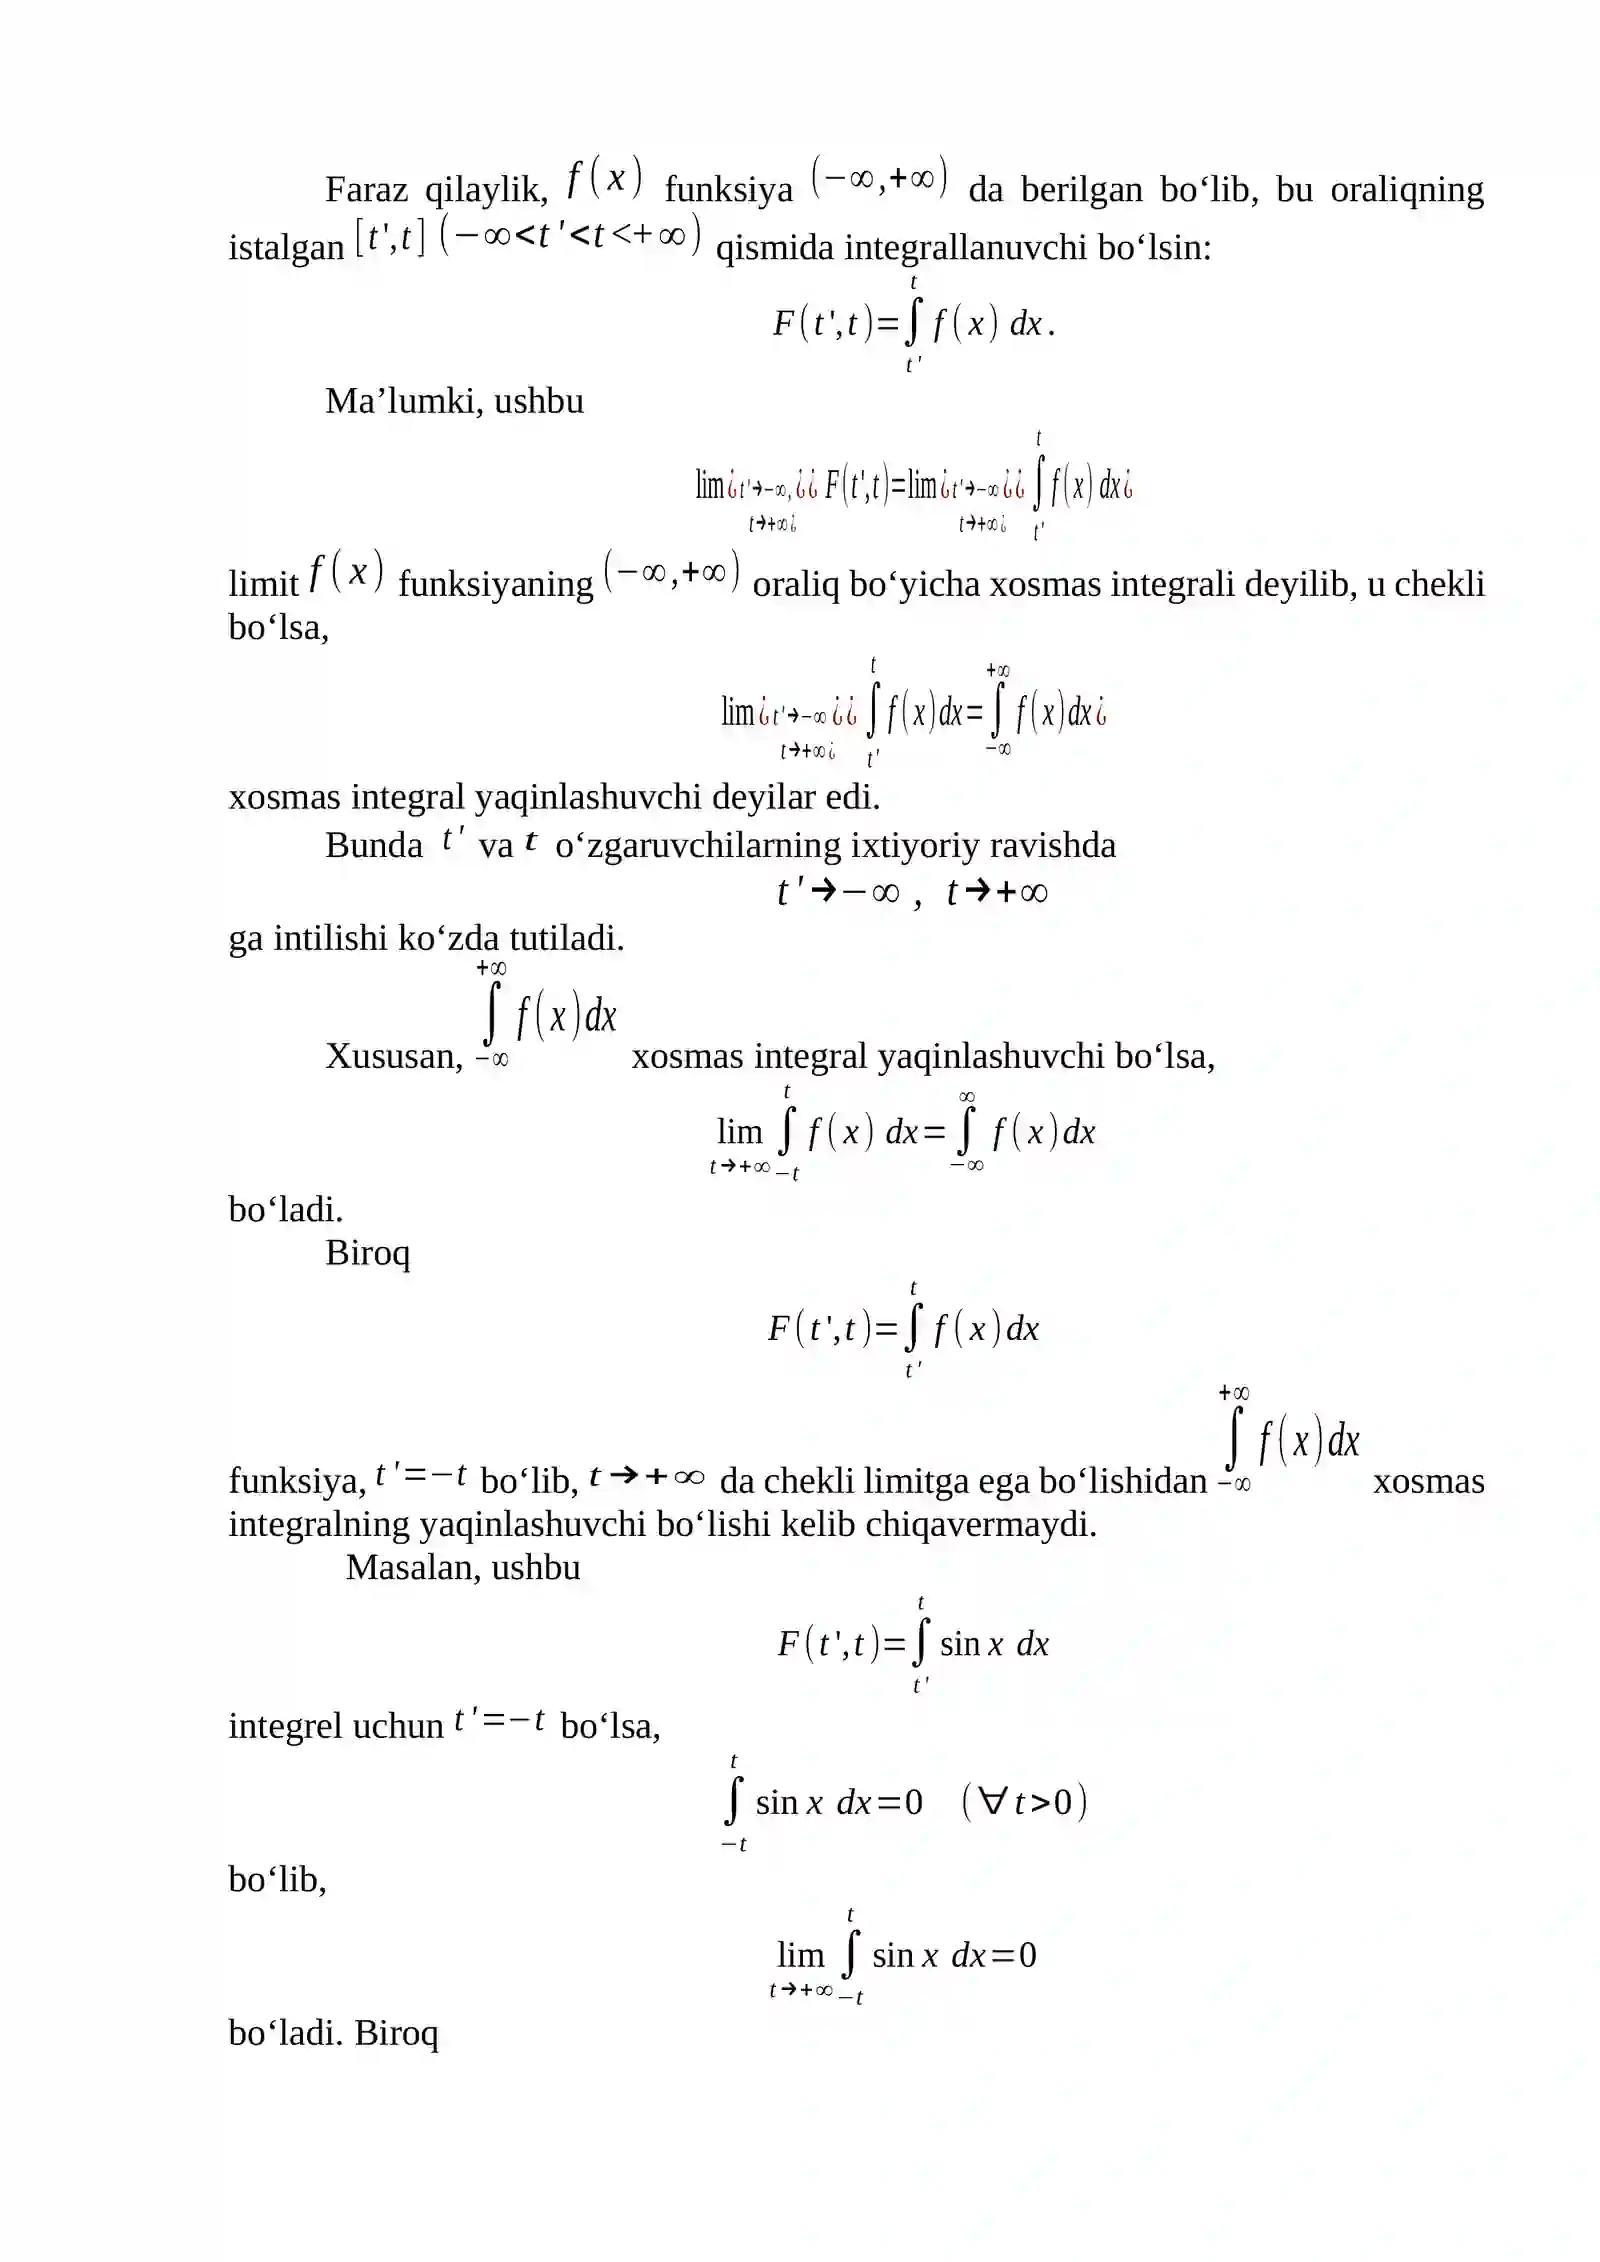 Faraz qilaylik, f(x) funksiya (−∞,+∞) da berilgan bo‘lib, bu oraliqning
istalgan [t',t] (−∞<t'<t<+∞) qismida integrallanuvchi bo‘lsin:
F(t',t)=∫_{t'}^{t} f(x) dx.
Ma’lumki, ushbu
lim¿_{t'→−∞, t→+∞¿}¿¿ F(t',t)=lim¿_{t'→−∞ t→+∞¿}¿¿ ∫_{t'}^{t} f(x) dx¿
limit f(x) funksiyaning (−∞,+∞) oraliq bo‘yicha xosmas integrali deyilib, u chekli
bo‘lsa,
lim¿_{t'→−∞ t→+∞¿}¿¿ ∫_{t'}^{t} f(x)dx=∫_{−∞}^{+∞} f(x)dx¿
xosmas integral yaqinlashuvchi deyilar edi.
Bunda t' va t o‘zgaruvchilarning ixtiyoriy ravishda
t'→−∞ , t→+∞
ga intilishi ko‘zda tutiladi.
Xususan, ∫_{−∞}^{+∞} f(x)dx xosmas integral yaqinlashuvchi bo‘lsa,
lim_{t→+∞} ∫_{−t}^{t} f(x) dx=∫_{−∞}^{∞} f(x)dx
bo‘ladi.
Biroq
F(t',t)=∫_{t'}^{t} f(x)dx
funksiya, t'=−t bo‘lib, t→+∞ da chekli limitga ega bo‘lishidan ∫_{−∞}^{+∞} f(x)dx xosmas
integralning yaqinlashuvchi bo‘lishi kelib chiqavermaydi.
Masalan, ushbu
F(t',t)=∫_{t'}^{t} sin x dx
integrel uchun t'=−t bo‘lsa,
∫_{−t}^{t} sin x dx=0 (∀t>0)
bo‘lib,
lim_{t→+∞} ∫_{−t}^{t} sin x dx=0
bo‘ladi. Biroq